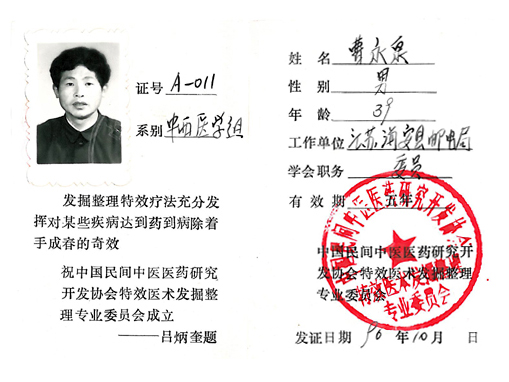 证号 A-011
系别 中西医学组
发掘整理特效疗法充分发
挥对某些疾病达到药到病除着
手成春的奇效
祝中国民间中医医药研究
开发协会特效医术发掘整
理专业委员会成立
——吕炳奎题
姓名 曹永泉
性别 男
年龄 39
工作单位 江苏海安县邮电局
学会职务 委员
有效期 五年
中国民间中医医药研究开
发协会特效医术发掘整理
专业委员会
中国民间中医医药研究开发协会
特效医术发掘整理
专业委员会
发证日期 90年10月 日